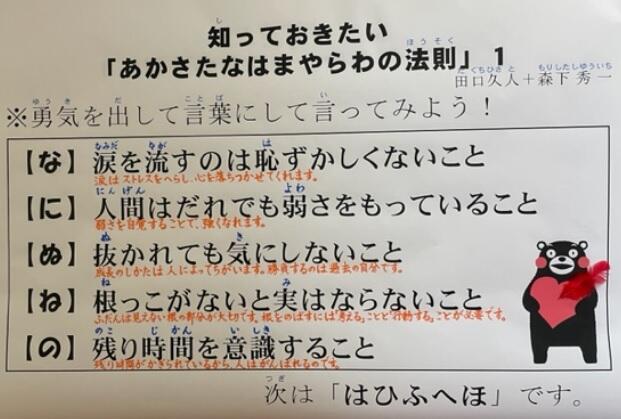 知っておきたい
「あかさたなはまやらわの法則」1
田口久人＋森下秀一
※勇気を出して言葉にして言ってみよう！
【な】涙を流すのは恥ずかしくないこと
涙はストレスをへらし、心を落ちつかせてくれます。
【に】人間はだれでも弱さをもっていること
弱さを自覚することで、強くなれます。
【ぬ】抜かれても気にしないこと
成長のしかたは人によってちがいます。勝負するのは過去の自分です。
【ね】根っこがないと実はならないこと
ふだんは見えない根の部分が大切です。根をのばすには「考える」ことと「行動する」ことが必要です。
【の】残り時間を意識すること
残り時間がかぎられているから、人はがんばれるのです。
次は「はひふへほ」です。